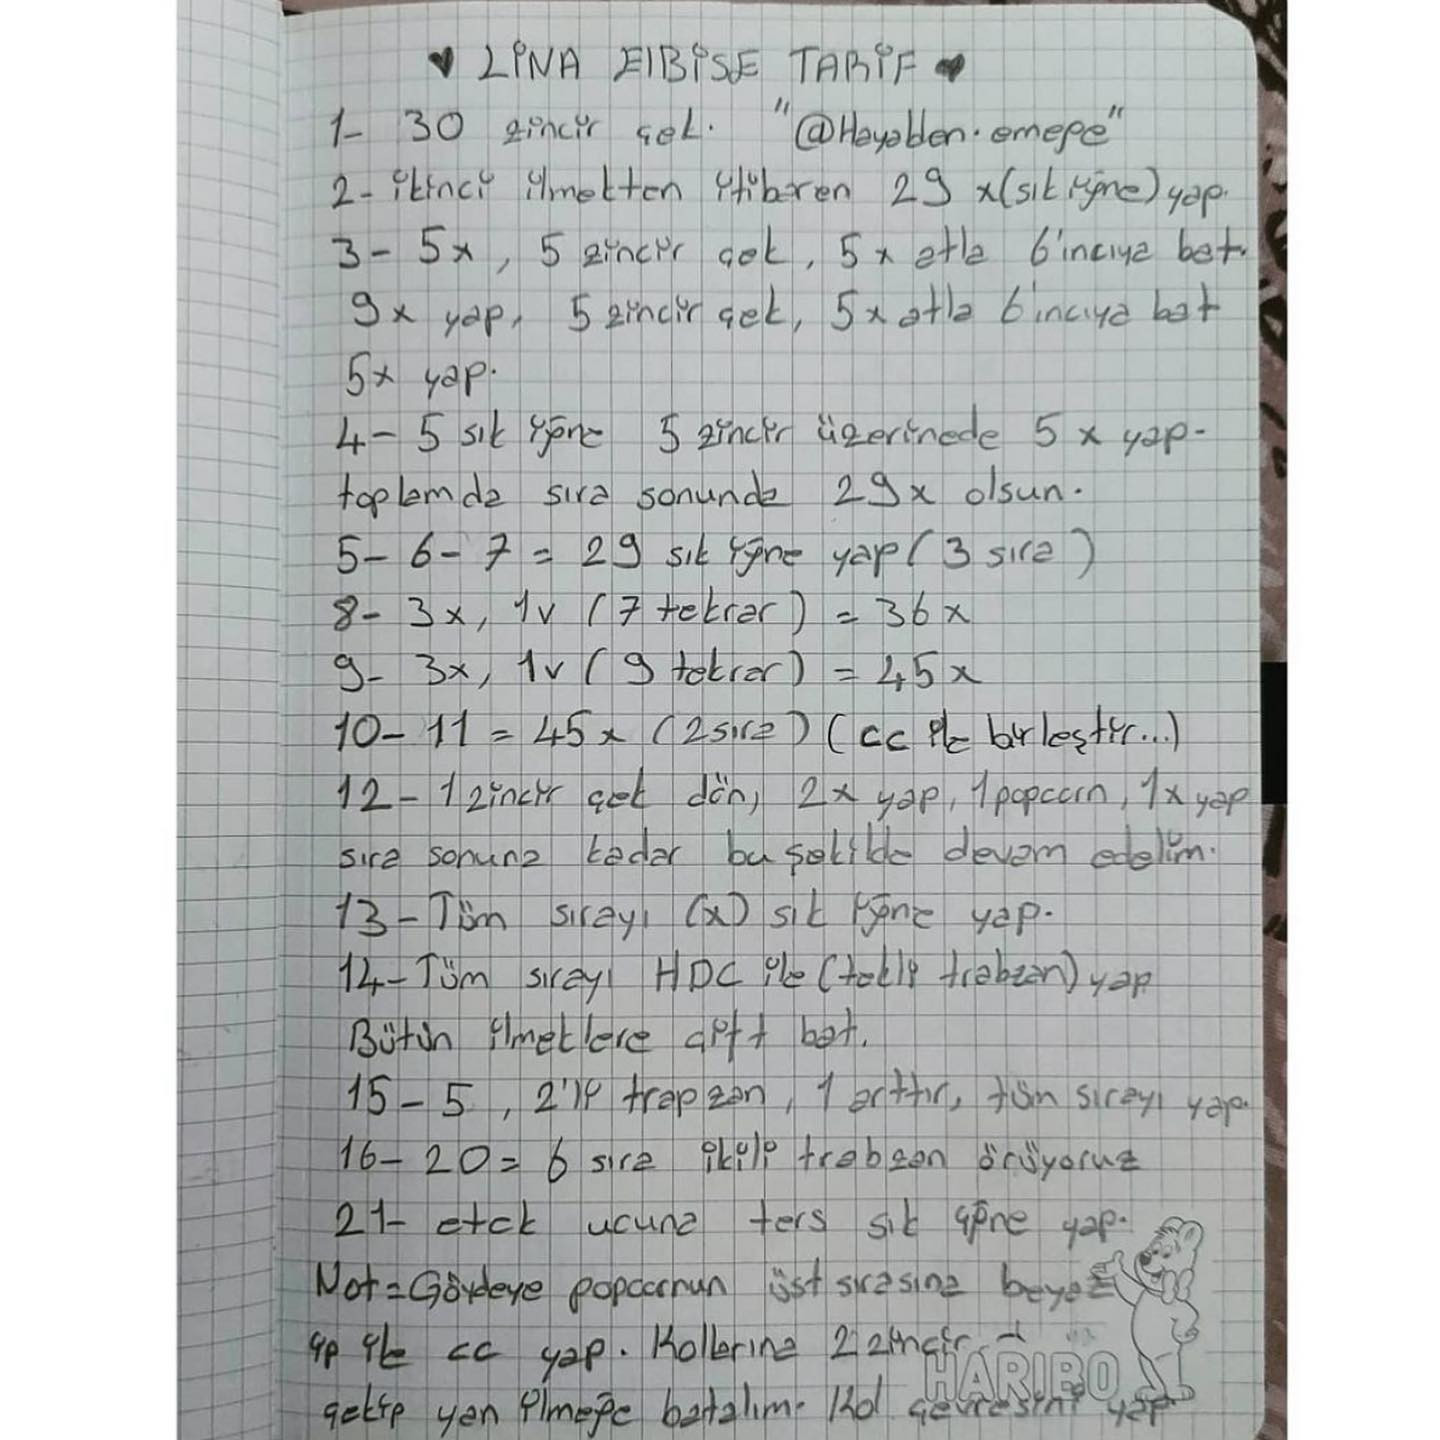 ♥ LİNA ElBİSE TARİF ♥
1- 30 zincir çek. "@Hayalden.emeğe"
2- ikinci ilmekten itibaren 29 x(sık iğne) yap.
3- 5x, 5 zincir çek, 5x atla 6'ıncıya bat.
9x yap, 5 zincir çek, 5x atla 6'ıncıya bat
5x yap.
4- 5 sık iğne 5 zincir üzerinede 5 x yap.
toplamda sıra sonunda 29x olsun.
5-6-7 = 29 sık iğne yap (3 sıra)
8- 3x, 1v (7 tekrar) = 36x
9- 3x, 1v (9 tekrar) = 45x
10-11 = 45x (2 sıra) (cc ile birleştir...)
12- 1 zincir çek dön, 2x yap, 1 popcorn, 1x yap
sıra sonuna kadar bu şekilde devam edelim.
13- Tüm sırayı (x) sık iğne yap.
14- Tüm sırayı HDC ile (tekli trabzan) yap
Bütün ilmeklere çift bat.
15- 5, 2'li trapzan, 1 arttır, tüm sırayı yap.
16-20= 6 sıra ikili trabzan örüyoruz
21- etek ucuna ters sık iğne yap.
Not= Gövdeye popcornun üst sırasına beyaz
ip ile cc yap. Kollarına 2 zincir
çekip yan ilmeğe batalım. Kol çevresini yap
HARIBO